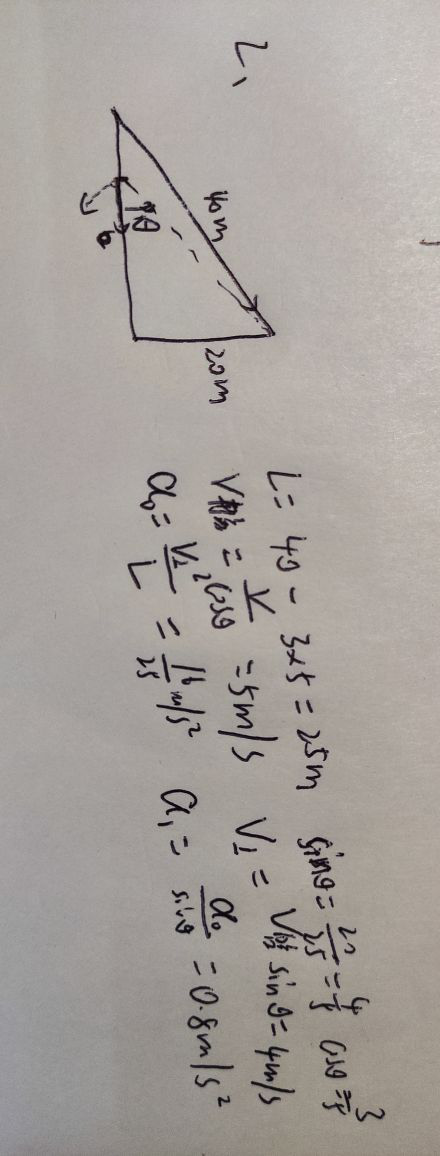 2、
40m
20m
θ
L = 40 - 3×5 = 25m
sinθ = 20/25 = 4/5 cosθ = 3/5
V船 = V/cosθ = 5m/s
V⊥ = V船 sinθ = 4m/s
a₀ = V⊥²/L = 16/25 m/s²
a₁ = a₀/sinθ = 0.8m/s²